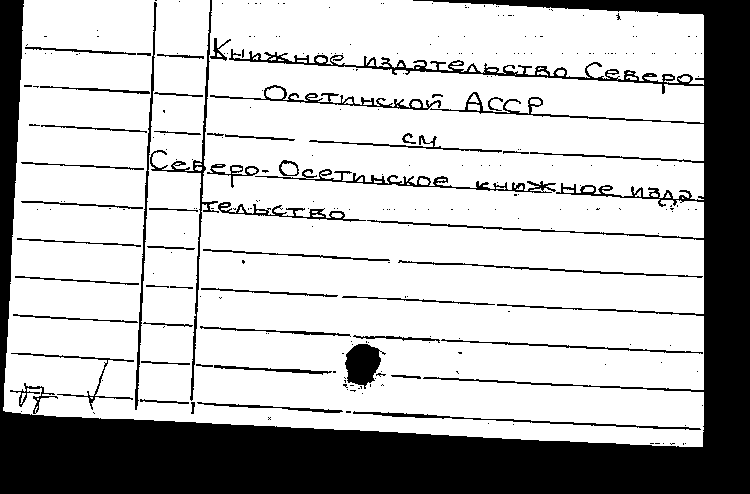 Книжное издательство Северо-
Осетинской АССР
см
Северо-Осетинское книжное изда-
тельство